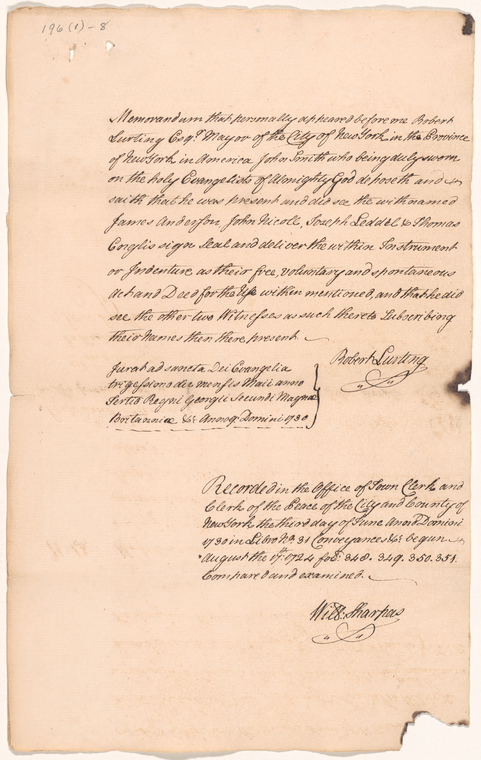 196(1)-8
Memorandum that personally appeared before me Robert
Lurting Esqr. Mayor of the City of New York in the Province
of New York in America John Smith who being duly sworn
on the holy Evangelists of Almighty God deposeth and
saith that he was present and did see the withnamed
James Anderson John Nicoll, Joseph Leddel & Thomas
Inglis sign Seal and deliver the within Instrument
or Indenture as their free, voluntary and spontaneous
Act and Deed for the Use within mentioned, and that he did
see the other two Witnesses as such thereto Subscribing
their Names then there present.
Robert Lurting
Jurat ad sancta Dei Evangelia
trigessimo die mensis Maii anno
Tertio Regni Georgii Secundi Magnæ
Britanniæ &c. Annoq. Domini 1730
Recorded in the Office of Town Clerk and
Clerk of the Peace of the City and County of
New York the third day of June Anno Domini
1730 in Libro No. 31 Conveyances &c. begun
August the 17th. 1724 fo: 348. 349. 350. 351.
Compared and examined.
Will: Sharpas